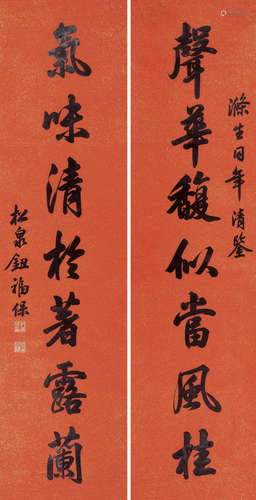 滌生同年清鑒
聲華馥似當風桂
氣味清於著露蘭
松泉鈕福保